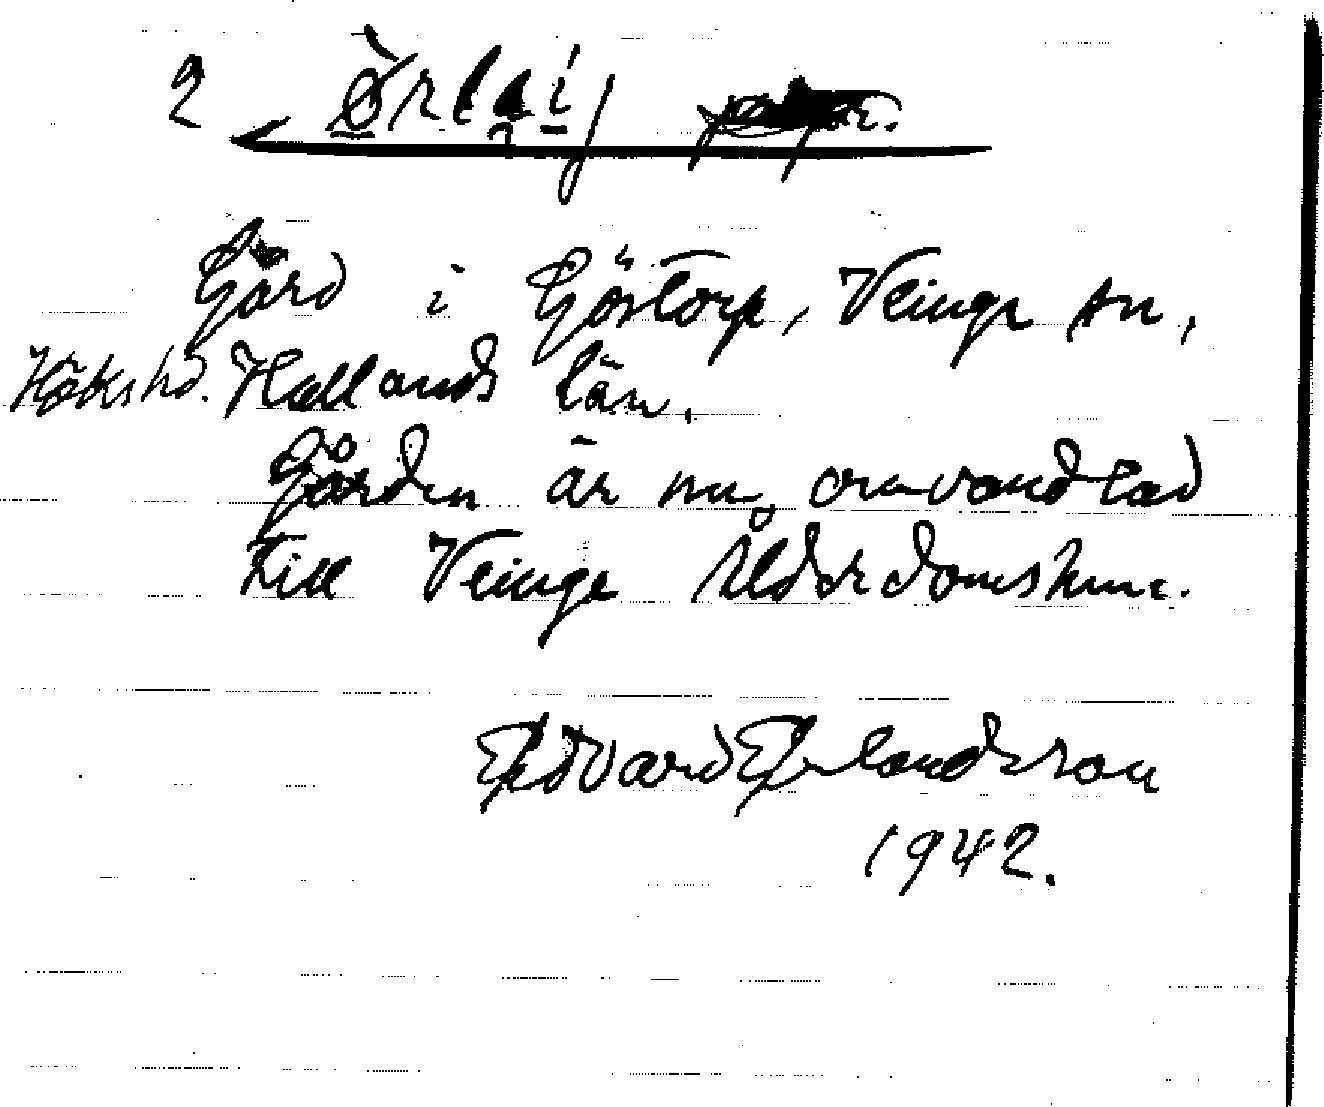 2
Gård i Göstorp, Veinge sn,
Höks hd. Hallands län.
Gården är nu omvandlad
till Veinge Ålderdomshem.
Edvard Erlandsson
1942.